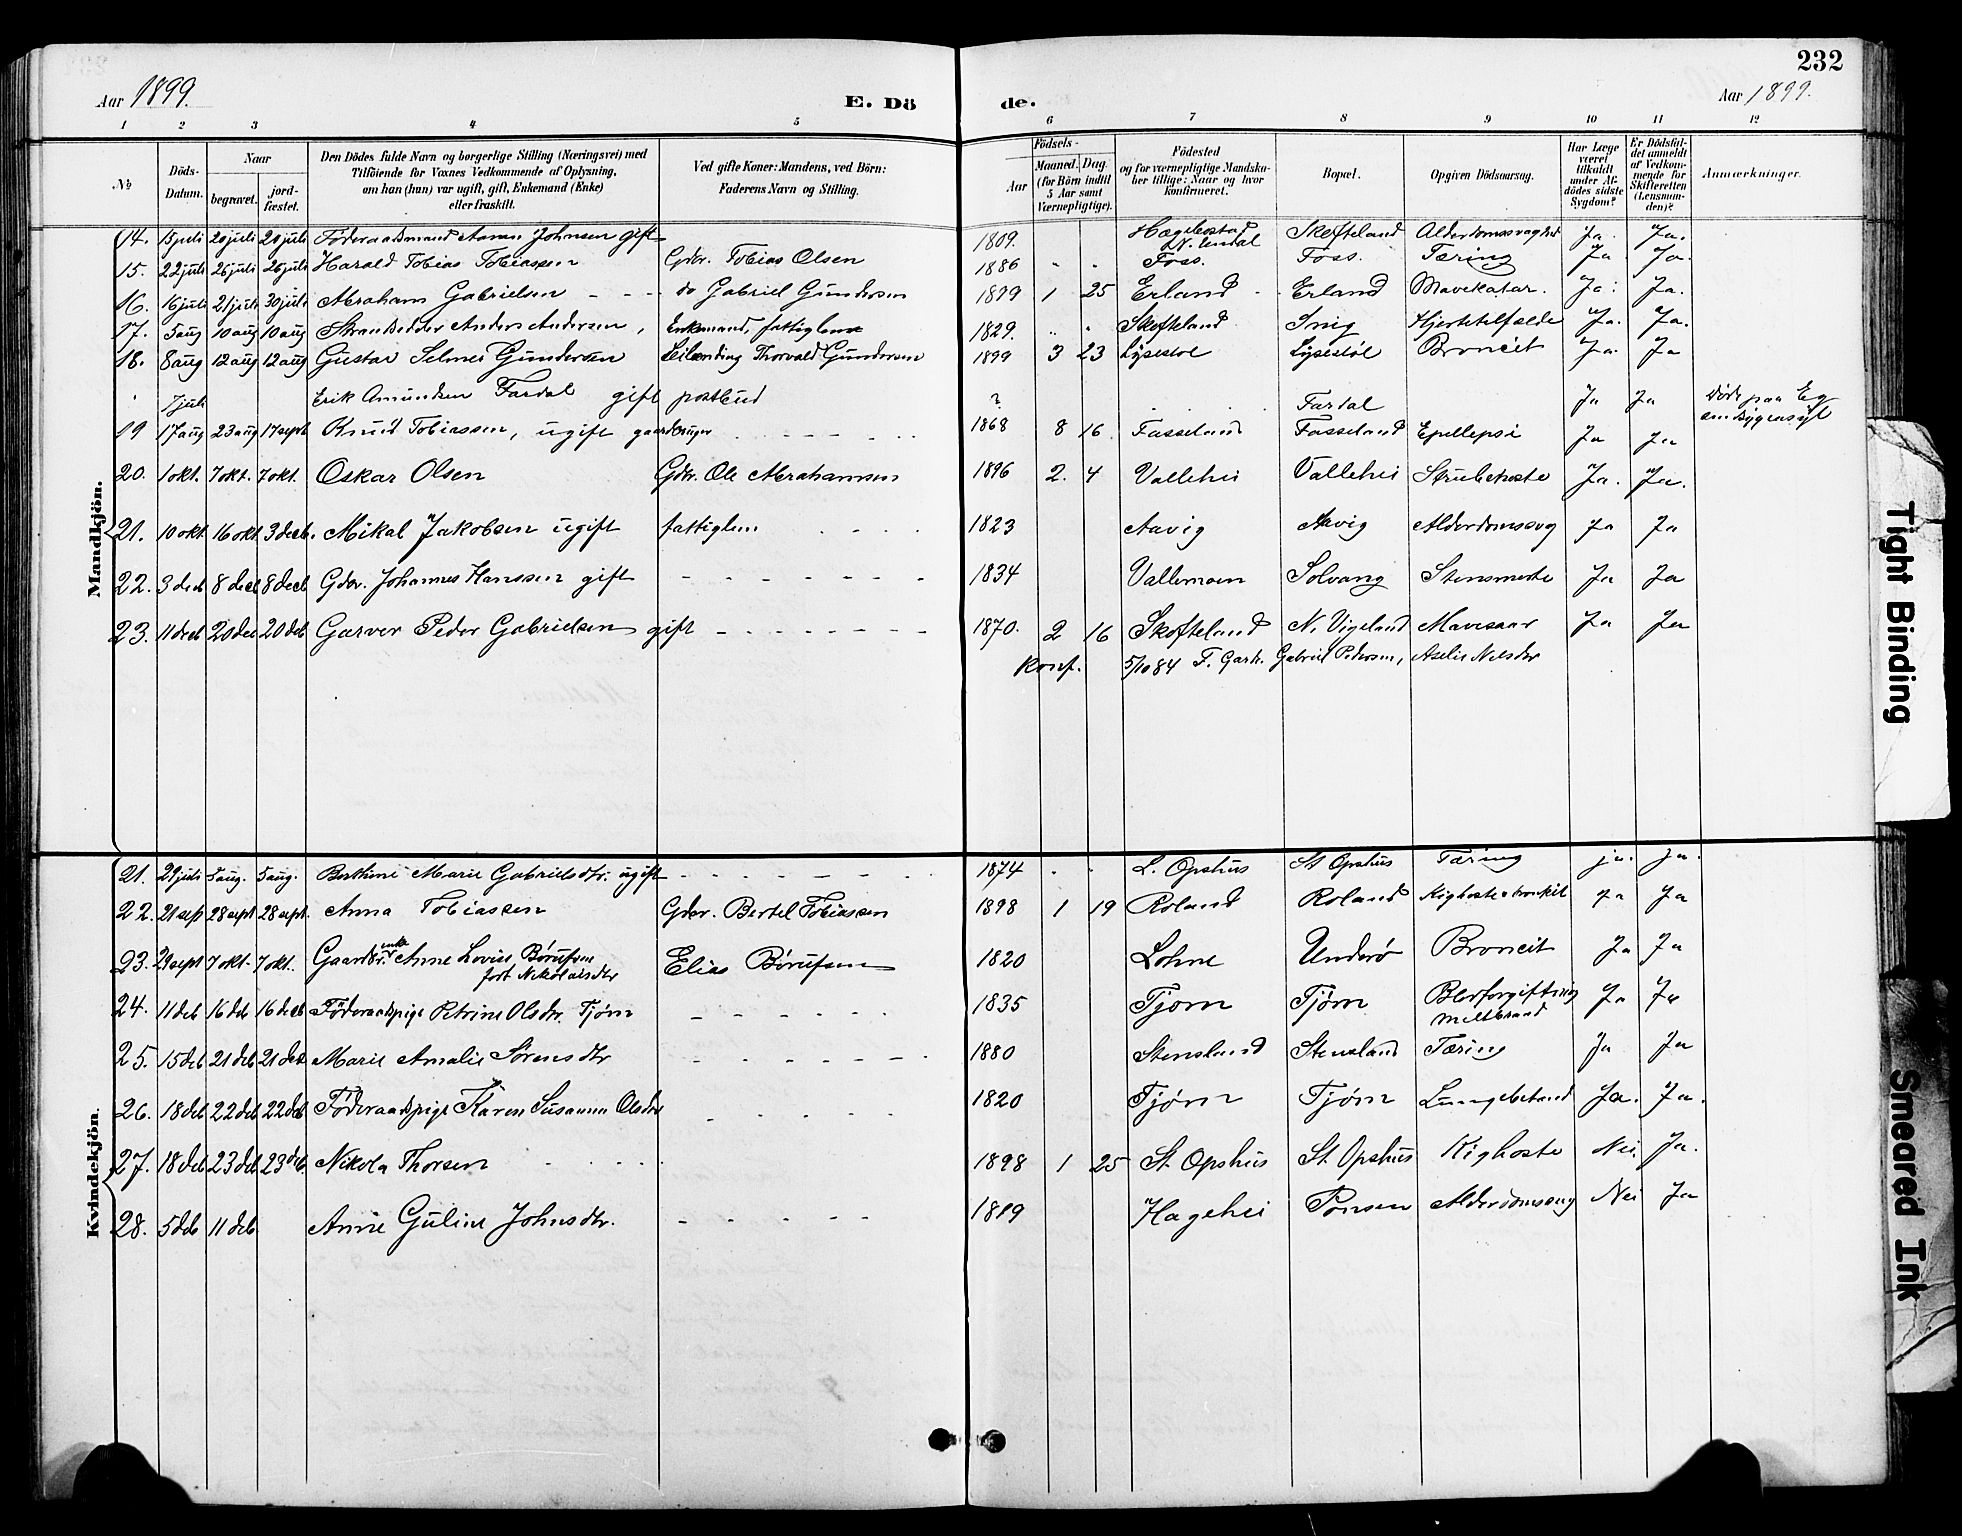 232
Aar 1899.
E. Dö
de.
Aar 1899.
1 2 3 4 5 6 7 8 9 10 11 12
№
Döds-Datum.
Naar
begravet.
jord-fæstet.
Den Dödes fulde Navn og borgerlige Stilling (Næringsvei) med
Tilföiende for Voxnes Vedkommende af Oplysning,
om han (hun) var ugift, gift, Enkemand (Enke)
eller fraskilt.
Ved gifte Koner: Mandens, ved Börn:
Faderens Navn og Stilling.
Födsels-
Aar
Maaned. Dag.
(for Börn indtil
5 Aar samt
Værnepligtige).
Födested
og for værnepligtige Mandska-
ber tillige: Naar og hvor
konfirmeret.
Bopæl.
Opgiven Dödsaarsag.
Har Læge
været
tilkaldt
under Af-
dödes sidste
Sygdom?
Er Dödsfal-
det anmeldt
af Vedkom-
mende for
Skifteretten
(Lensman-
den)?
Anmærkninger.
Mandkjön.
14. 15 juli 20 juli 20 juli Föderaadsmand Aanen Johnsen gift 1809. Hægebostad N. Undal Skofteland Alderdomssvaghed Ja. Ja.
15. 22 juli 26 juli 26 juli Harald Tobias Tobiassen Gdbr. Tobias Olsen 1886 " " Foss. Foss. Tæring Ja Ja.
16. 16 juli 21 juli 30 juli Abraham Gabrielsen - - - do Gabriel Gundersen 1899 1 25 Erland - - Erland Mavekatar. Ja. Ja.
17. 5 aug 10 aug 10 aug Anders Andersen, Enkemand, fattiglem 1829. " " Skofteland Snig Hjertetilfælde Ja. Ja.
18. 8 aug 12 aug 12 aug Gustav Selmer Gundersen Leilænding Thorvald Gundersen 1899 3 23 Lysestöl Lysestöl Broncit Ja. Ja
" 7 juli Erik Amundsen Fardal gift postbud ? Fardal Ja Ja Döde paa Eg sindsygeasyl
19 17 aug 23 aug 17 sept Knud Tobiassen, ugift gaardbruger 1868 8 16. Fasseland Fasseland Epellepsi Ja Ja
20. 1 okt. 7 okt. 7 okt. Oskar Olsen Gdbr. Ole Abrahamsen 1896 2. 4 Vallehei Vallehei Strubehoste Ja. Ja.
21. 10 okt. 16 okt. 3 decb. Mikal Jakobsen ugift fattiglem 1823 Aavig Aavig Alderdomssvag Ja Ja
22. 3 decb 8 decb 8 decb Gdbr. Johannes Hanssen gift - - - - - - - 1834 Vallemoen Solvang Stensmerte Ja Ja
23. 11 decb 20 dec 20 deb Garver Peder Gabrielsen gift - - - - - - - 1870. 2 16 Skofteland N. Vigeland Mavesaar Ja Ja
Konf. 5/10 84 F. Garb. Gabriel Pedersen, Aselie Nilsdtr
Kvindekjön.
21. 29 juli 5 aug. 5 aug. Berthine Marie Gabrielsdtr. ugift - - - - - - 1874 " " L. Opshus St Opshus Tæring ja. ja.
22. 21 sep 28 sept 28 sept. Anna Tobiassen Gdbr. Bertel Tobiassen 1898 1 19 Roland Roland Kighoste o bronkit ja Ja
23. 29 sept 7 okt. 7 okt. Gaardbr. enke Anne Lovise Börufsen
født Nikolaisdtr Elias Börufsen 1820 Lohne Underö Broncit Ja Ja
24. 11 deb 16 deb 16 decb Föderaadspige Petrine Olsdtr. Tjörn - - - - - 1835 Tjorn Tjörn Blodforgiftning
miltbrand Ja Ja
25. 15 deb 21 deb 21 deb Marie Amalie Sörensdtr - - - - - - 1880 Stensland Stensland Tæring Ja Ja
26. 18 deb 22 deb 22 deb Föderaadspige Karen Susanne Olsdtr - - - - 1820 Tjörn Tjörn Lungebetænd Ja. Ja.
27. 18 deb 23 deb 23 deb. Nikola Thorsen 1898 1 25 St. Opshus St. Opshus Kighoste Nei Ja.
28. 5 deb 11 deb Anne Guline Johnsdtr. - - - - - 1819 Hagehei Alderdomssvag Nei Ja
Tight Binding
Smeared Ink